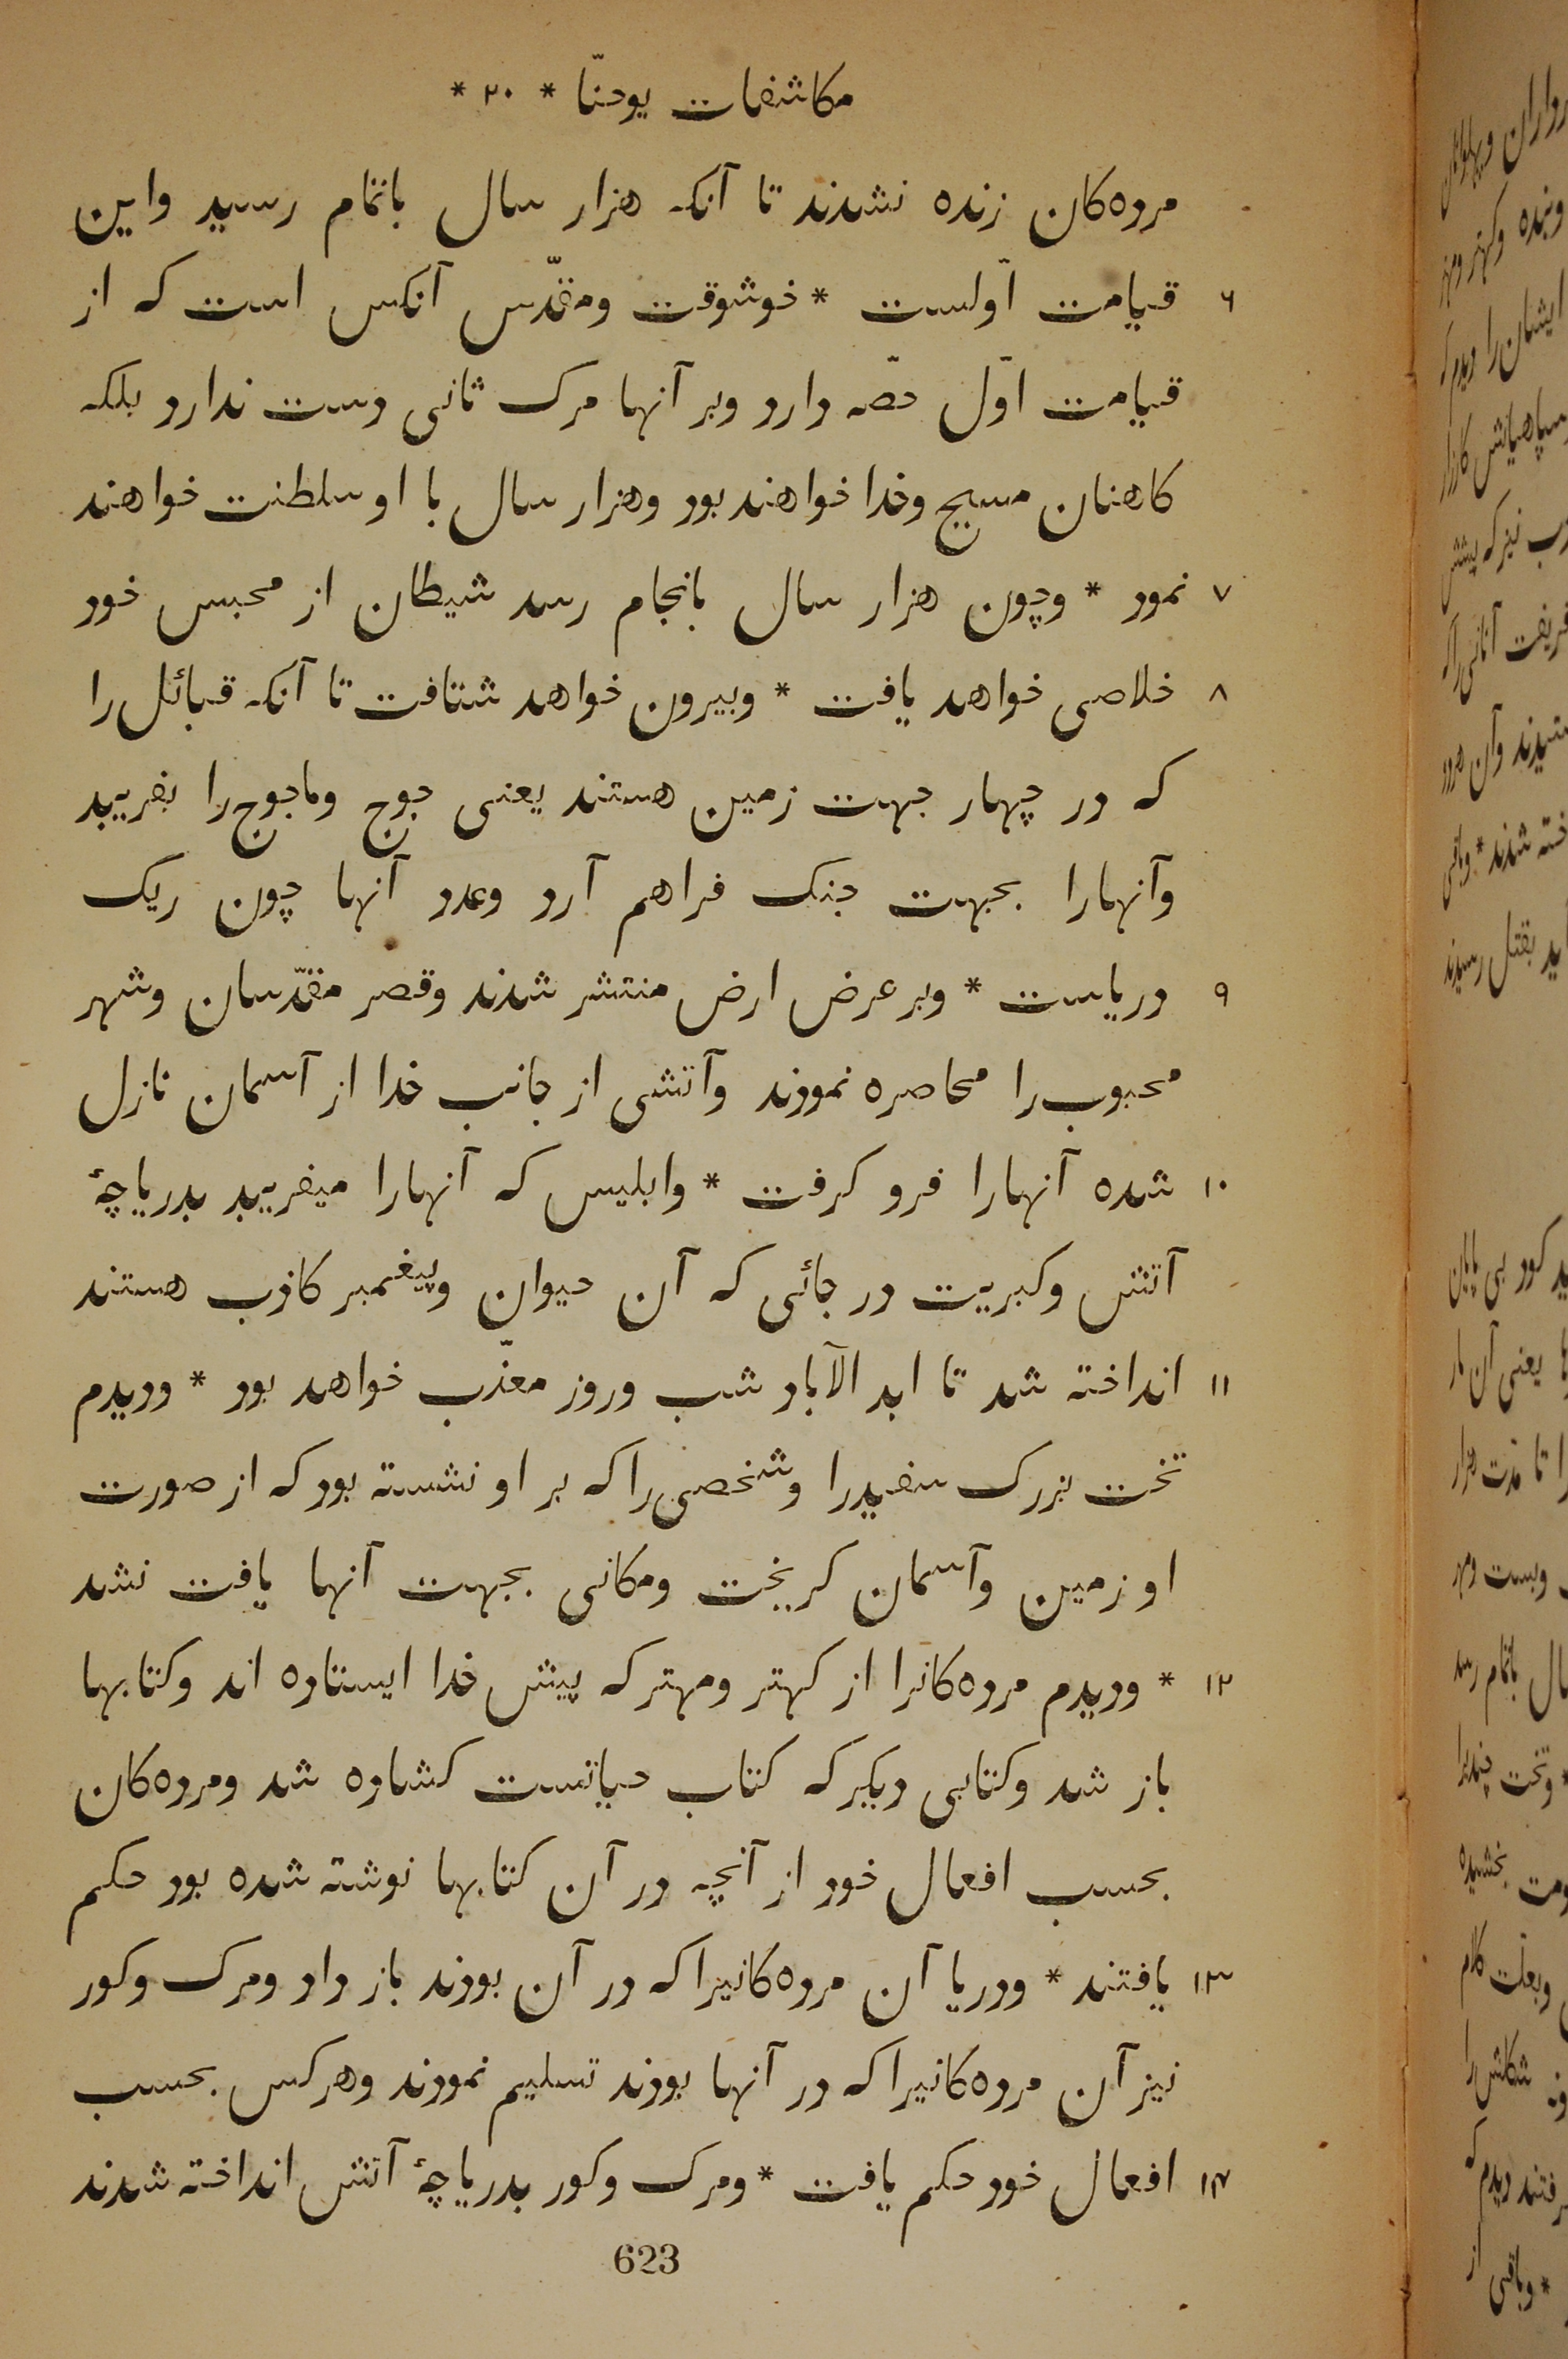 مکاشفات یوحنّا * ۲۰ *
مرده‌کان زنده نشدند تا آنکه هزار سال باتمام رسید واین
۶ قیامت اوّلست * خوشوقت ومقدّس آنکس است که از
قیامت اوّل حصّه دارد وبر آنها مرک ثانی دست ندارد بلکه
کاهنان مسیح وخدا خواهند بود وهزار سال با او سلطنت خواهند
۷ نمود * وچون هزار سال بانجام رسد شیطان از محبس خود
۸ خلاصی خواهد یافت * وبیرون خواهد شتافت تا آنکه قبائل را
که در چهار جهت زمین هستند یعنی جوج وماجوج را بفریبد
وآنهارا بجهت جنک فراهم آرد وعدد آنها چون ریک
۹ دریاست * وبر عرض ارض منتشر شدند وقصر مقدّسان وشهر
محبوب را محاصره نمودند وآتشی از جانب خدا از آسمان نازل
۱۰ شده آنهارا فرو کرفت * وابلیس که آنهارا میفریبد بدریاچهٔ
آتش وکبریت در جائی که آن حیوان وپیغمبر کاذب هستند
۱۱ انداخته شد تا ابد الآباد شب وروز معذّب خواهد بود * ودیدم
تخت بزرک سفیدرا وشخصی را که بر او نشسته بود که از صورت
او زمین وآسمان کریخت ومکانی بجهت آنها یافت نشد
۱۲ * ودیدم مرده‌کانرا از کهتر ومهتر که پیش خدا ایستاده اند وکتابها
باز شد وکتابی دیکر که کتاب حیاتست کشاده شد ومرده‌کان
بحسب افعال خود از آنچه در آن کتابها نوشته شده بود حکم
۱۳ یافتند * ودریا آن مرده‌کانیرا که در آن بودند باز داد ومرک وکور
نیز آن مرده‌کانیرا که در آنها بودند تسلیم نمودند وهر کس بحسب
۱۴ افعال خود حکم یافت * ومرک وکور بدریاچهٔ آتش انداخته شدند
623